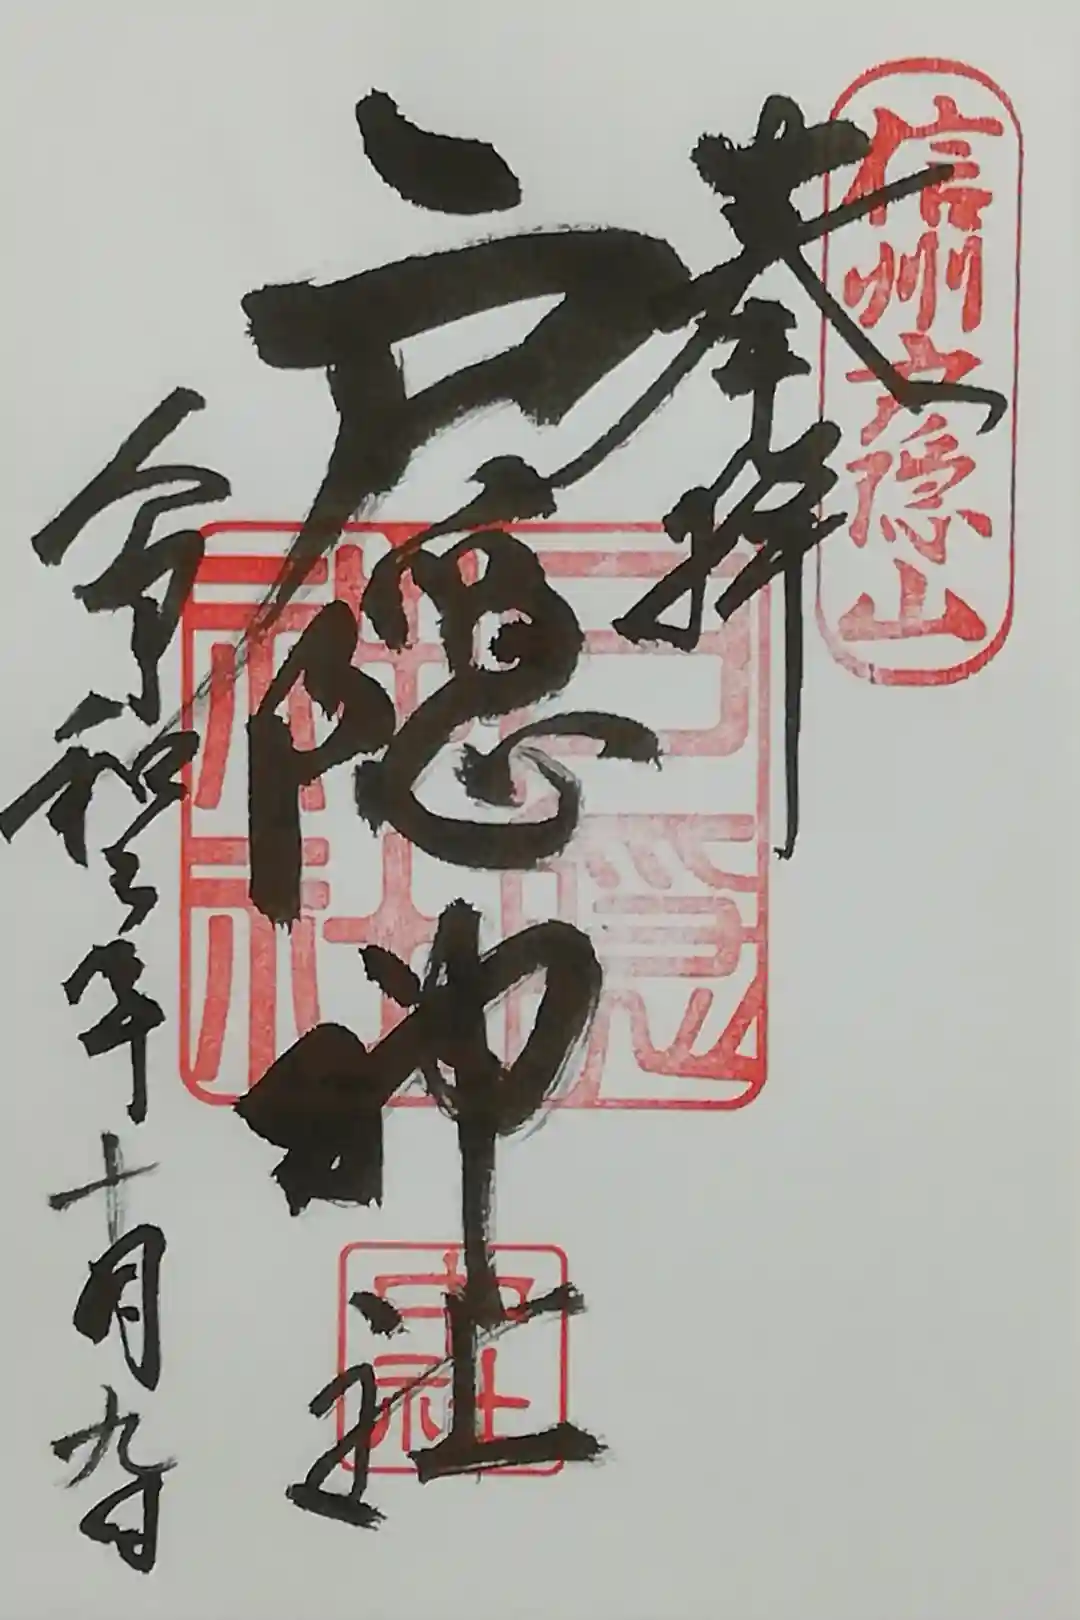 信州戸隠山
奉拝
戸隠神社
戸隠
神社
宝社
令和三年十月九日